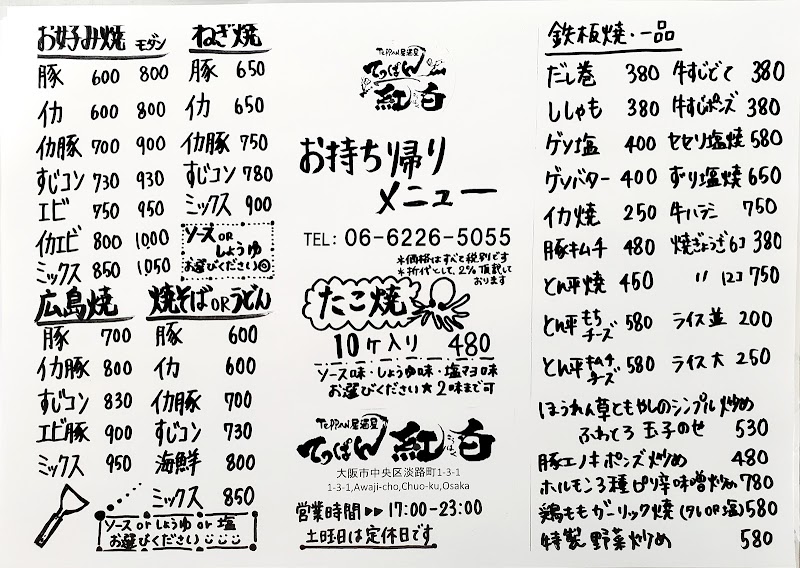 お好み焼 モダン
豚 600 800
イカ 600 800
イカ豚 700 900
すじコン 730 930
エビ 750 950
イカエビ 800 1000
ミックス 850 1050
ねぎ焼
豚 650
イカ 650
イカ豚 750
すじコン 780
ミックス 900
ソースOR
しょうゆ
お選びください
広島焼
豚 700
イカ豚 800
すじコン 830
エビ豚 900
ミックス 950
焼そばORうどん
豚 600
イカ 600
イカ豚 700
すじコン 730
海鮮 800
ミックス 850
ソース or しょうゆ or 塩
お選びください
TePPAN居酒屋
てっぱん
紅白
お持ち帰り
メニュー
TEL: 06-6226-5055
*価格はすべて税別です
*折代として、2%頂戴して
おります
たこ焼
10ケ入り 480
ソース味・しょうゆ味・塩マヨ味
お選びください★2味まで可
TePPAN居酒屋
てっぱん 紅白
大阪市中央区淡路町1-3-1
1-3-1,Awaji-cho,Chuo-ku,Osaka
営業時間▸▸ 17:00-23:00
土曜日は定休日です
鉄板焼・一品
だし巻 380 牛すじどて 380
ししゃも 380 牛すじポンズ 380
ゲソ塩 400 セセリ塩焼 580
ゲソバター 400 ずり塩焼 650
イカ焼 250 牛ハラミ 750
豚キムチ 480 焼ぎょうざ6コ 380
とん平焼 450 〃 12コ 750
とん平もちチーズ 580 ライス並 200
とん平キムチチーズ 580 ライス大 250
ほうれん草ともやしのシンプル炒め
ふわとろ玉子のせ 530
豚エノキポンズ炒め 480
ホルモン3種ピリ辛味噌炒め 780
鶏ももガーリック焼(タレOR塩) 580
特製 野菜炒め 580